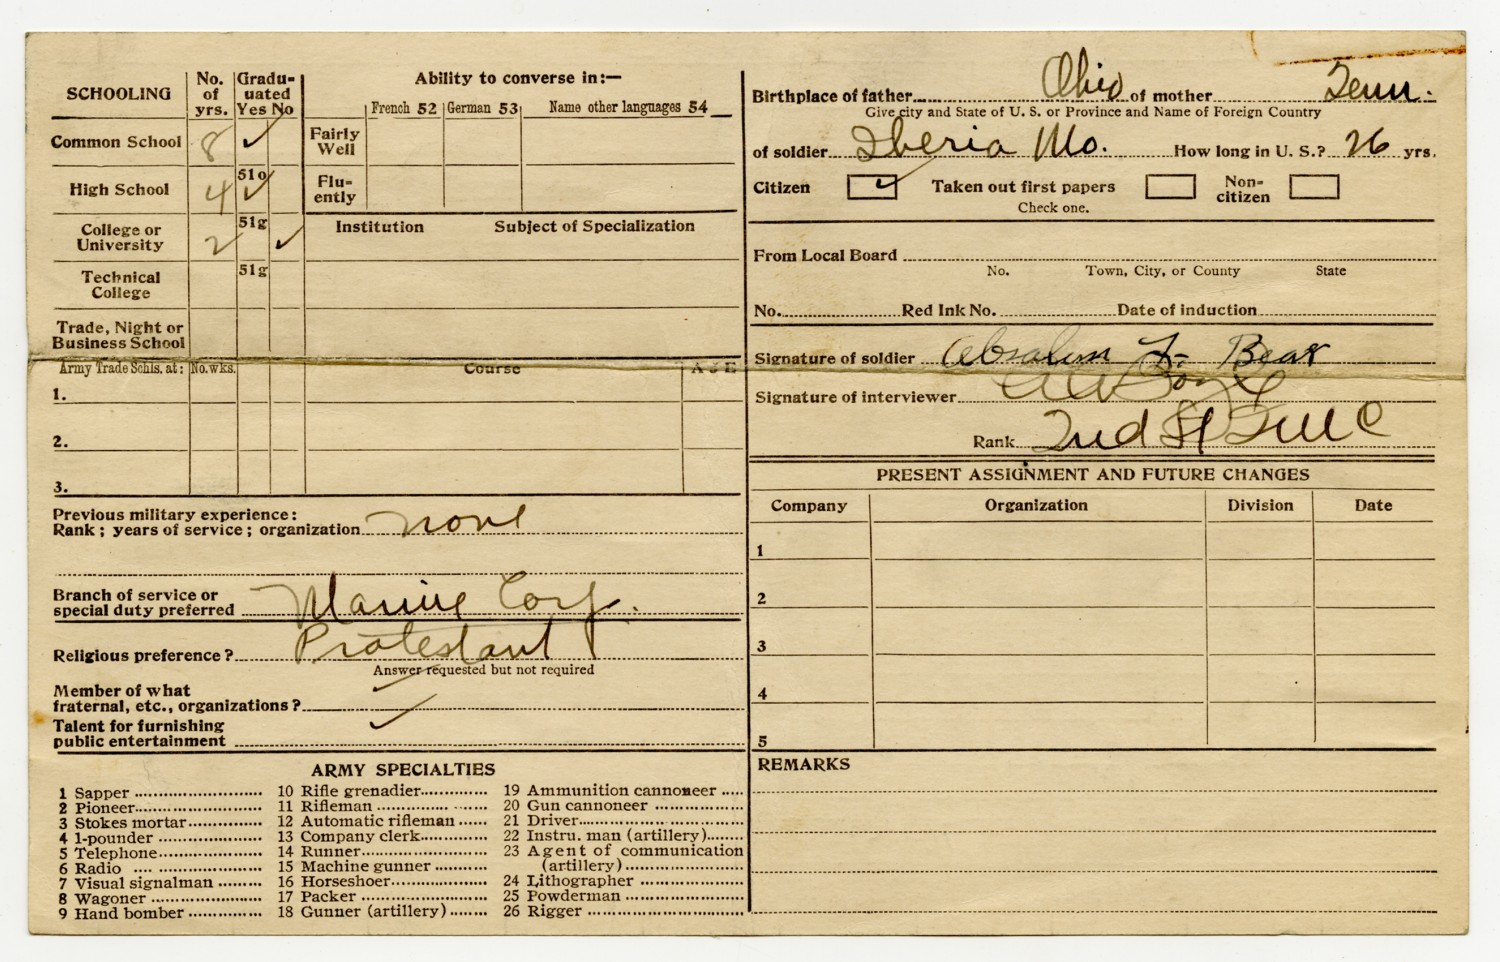 SCHOOLING
No. of yrs.
Graduated Yes No
Ability to converse in:—
French 52
German 53
Name other languages 54
Common School 8 ✓
Fairly Well
High School 4 51o ✓
Fluently
College or University 2 51g ✓
Institution
Subject of Specialization
Technical College 51g
Trade, Night or Business School
Army Trade Schls. at:
No. wks.
Course
A J E
1.
2.
3.
Previous military experience:
Rank; years of service; organization none
Branch of service or
special duty preferred Marine Corp.
Religious preference? Protestant
Answer requested but not required
Member of what
fraternal, etc., organizations? ✓
Talent for furnishing
public entertainment ✓
ARMY SPECIALTIES
1 Sapper
2 Pioneer
3 Stokes mortar
4 1-pounder
5 Telephone
6 Radio
7 Visual signalman
8 Wagoner
9 Hand bomber
10 Rifle grenadier
11 Rifleman
12 Automatic rifleman
13 Company clerk
14 Runner
15 Machine gunner
16 Horseshoer
17 Packer
18 Gunner (artillery)
19 Ammunition cannoneer
20 Gun cannoneer
21 Driver
22 Instru. man (artillery)
23 Agent of communication
(artillery)
24 Lithographer
25 Powderman
26 Rigger
Birthplace of father Ohio of mother Tenn.
Give city and State of U. S. or Province and Name of Foreign Country
of soldier Iberia Mo. How long in U. S.? 26 yrs.
Citizen ✓ Taken out first papers Non-citizen
Check one.
From Local Board
No. Town, City, or County State
No. Red Ink No. Date of induction
Signature of soldier Absalom F. Bear
Signature of interviewer
Rank 2nd Lt
PRESENT ASSIGNMENT AND FUTURE CHANGES
Company Organization Division Date
1
2
3
4
5
REMARKS